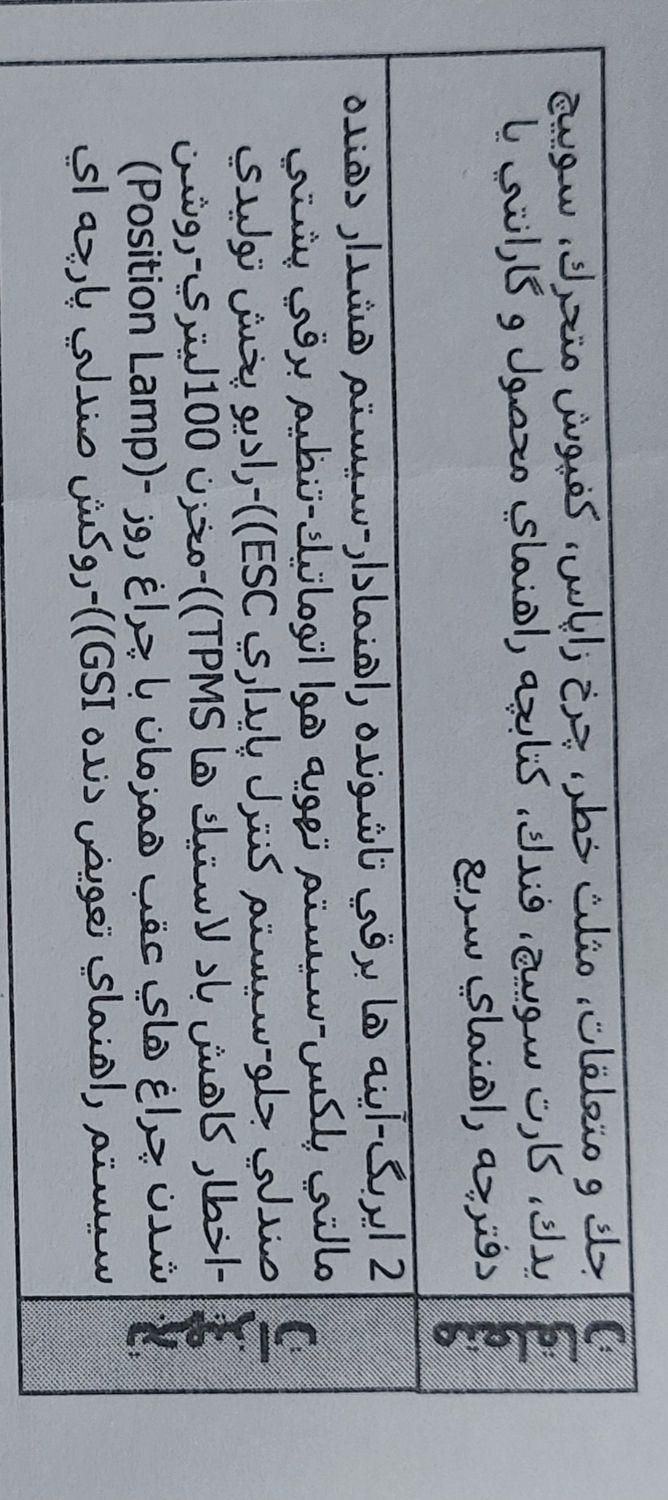 متعلقات
جك و متعلقات، مثلث خطر، چرخ زاپاس، كفپوش متحرك، سوييچ
يدك، كارت سوييچ، فندك، كتابچه راهنماي محصول و گارانتي يا
دفترچه راهنماي سريع
تجهيزات
2 ايربگ-آينه ها برقي تاشونده راهنمادار-سيستم هشدار دهنده
مالتي پلكس-سيستم تهويه هوا اتوماتيك-تنظيم برقي پشتي
صندلي جلو-سيستم كنترل پايداري ESC))-راديو پخش توليدي
-اخطار كاهش باد لاستيك ها TPMS))-مخزن 100ليتري-روشن
شدن چراغ هاي عقب همزمان با چراغ روز -(Position Lamp)
سيستم راهنماي تعويض دنده GSI))-روكش صندلي پارچه اي